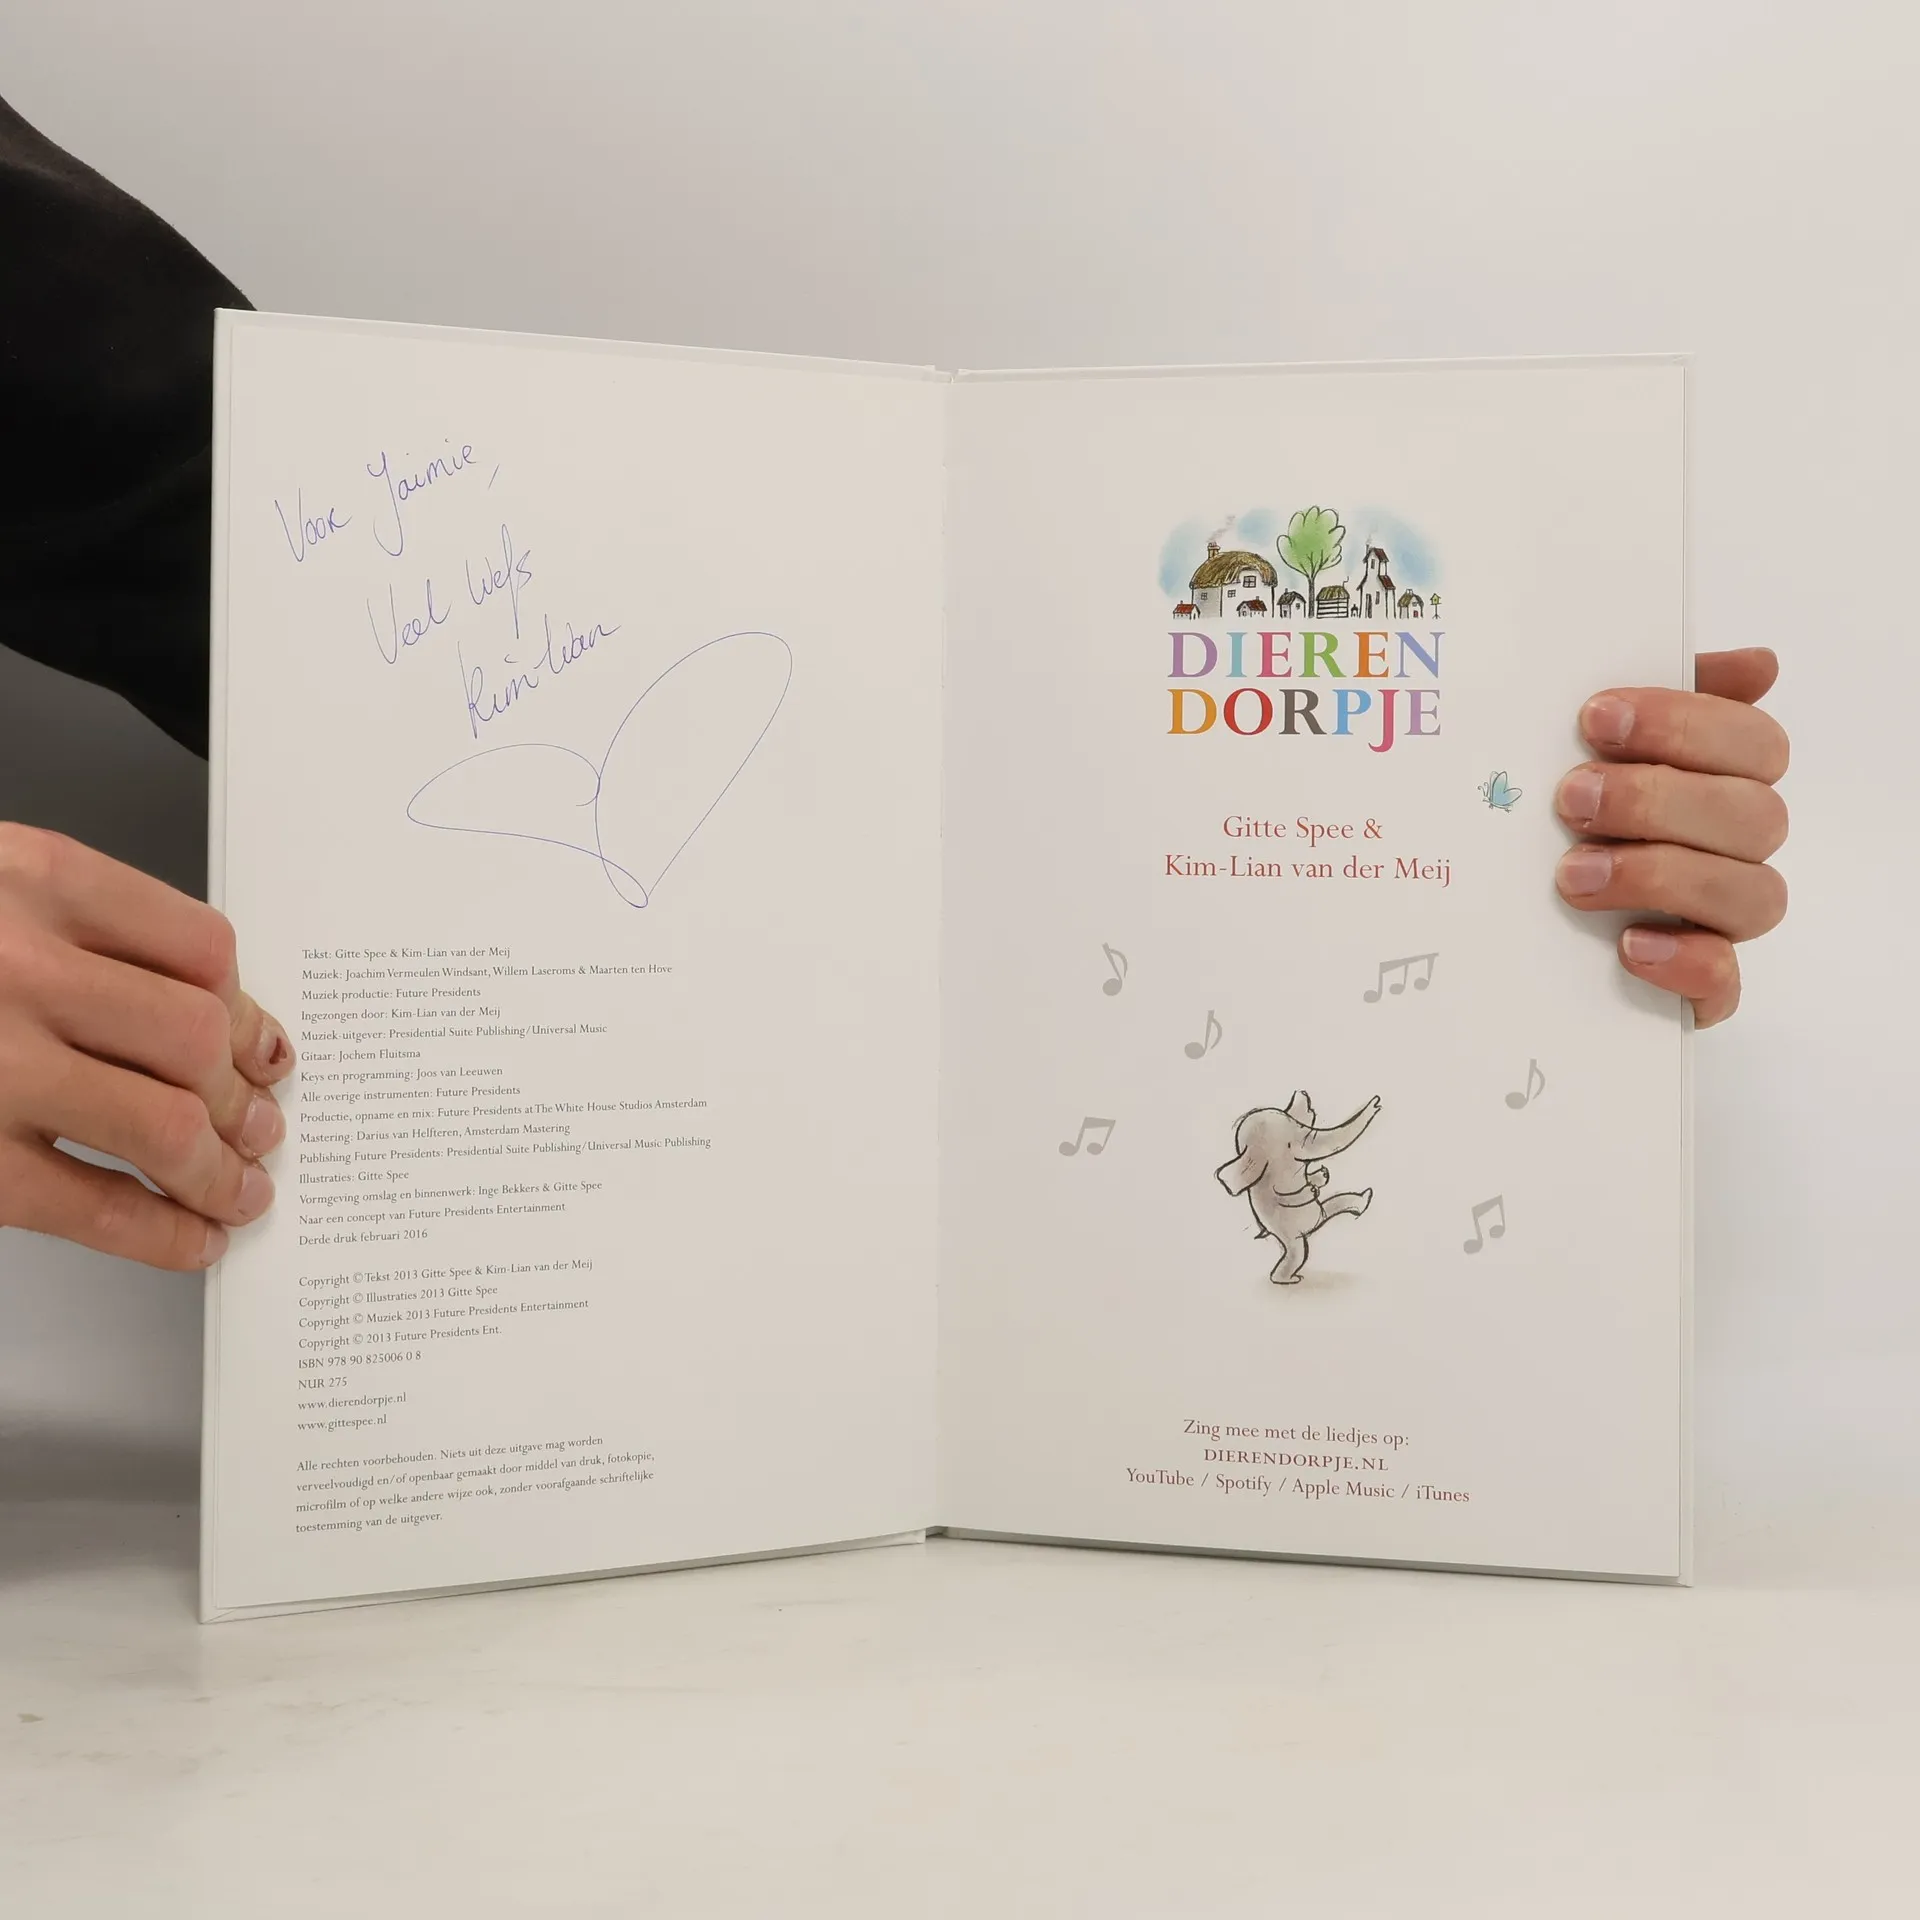 Voor Jaimie,
Veel liefs
Kim-Lian
Tekst: Gitte Spee & Kim-Lian van der Meij
Muziek: Joachim Vermeulen Windsant, Willem Laseroms & Maarten ten Hove
Muziek productie: Future Presidents
Ingezongen door: Kim-Lian van der Meij
Muziek-uitgever: Presidential Suite Publishing/Universal Music
Gitaar: Jochem Fluitsma
Keys en programming: Joos van Leeuwen
Alle overige instrumenten: Future Presidents
Productie, opname en mix: Future Presidents at The White House Studios Amsterdam
Mastering: Darius van Helfteren, Amsterdam Mastering
Publishing Future Presidents: Presidential Suite Publishing/Universal Music Publishing
Illustraties: Gitte Spee
Vormgeving omslag en binnenwerk: Inge Bekkers & Gitte Spee
Naar een concept van Future Presidents Entertainment
Derde druk februari 2016
Copyright © Tekst 2013 Gitte Spee & Kim-Lian van der Meij
Copyright © Illustraties 2013 Gitte Spee
Copyright © Muziek 2013 Future Presidents Entertainment
Copyright © 2013 Future Presidents Ent.
ISBN 978 90 825006 0 8
NUR 275
www.dierendorpje.nl
www.gittespee.nl
Alle rechten voorbehouden. Niets uit deze uitgave mag worden
verveelvoudigd en/of openbaar gemaakt door middel van druk, fotokopie,
microfilm of op welke andere wijze ook, zonder voorafgaande schriftelijke
toestemming van de uitgever.
DIEREN
DORPJE
Gitte Spee &
Kim-Lian van der Meij
Zing mee met de liedjes op:
DIERENDORPJE.NL
YouTube / Spotify / Apple Music / iTunes